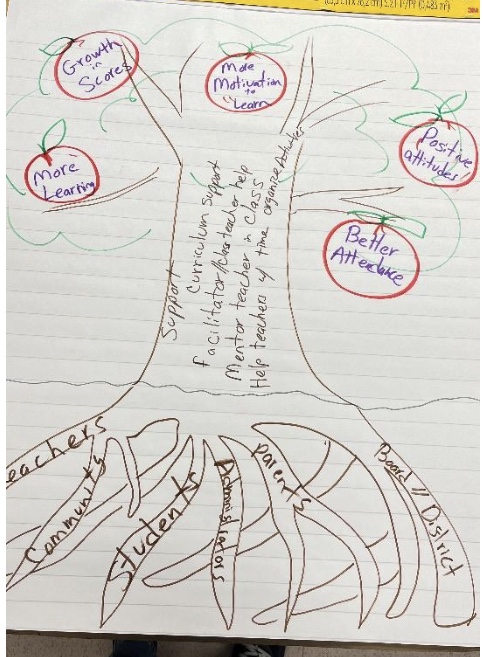 Growth
in
Scores
More
Motivation
to
Learn
Positive
attitudes!
More
Learning
Better
Attendance
Support
Curriculum support
facilitator//charteacher help
Mentor teacher in class
Help teachers w/ time organize Activities
eachers
Community
Students
Administrators
parents
Board // District
3M